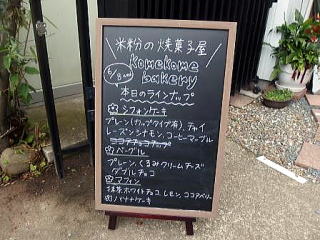 米粉の焼菓子屋
komekome
bakery
6/8
本日のラインナップ
シフォンケーキ
プレーン(カップタイプ有)、チャイ
レーズンシナモン、コーヒーマーブル
ココアチョコチップ
ベーグル
プレーン、くるみクリームチーズ
ダブルチョコ
マフィン
抹茶ホワイトチョコ、レモン、ココアベリー
バナナケーキ